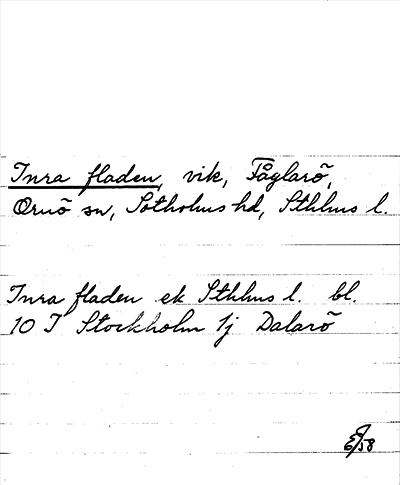 Inra fladen, vik, Fåglarö,
Ornö sn, Sotholms hd, Sthlms l.
Inra fladen ek Sthlms l. bl.
10 I Stockholm 1j Dalarö